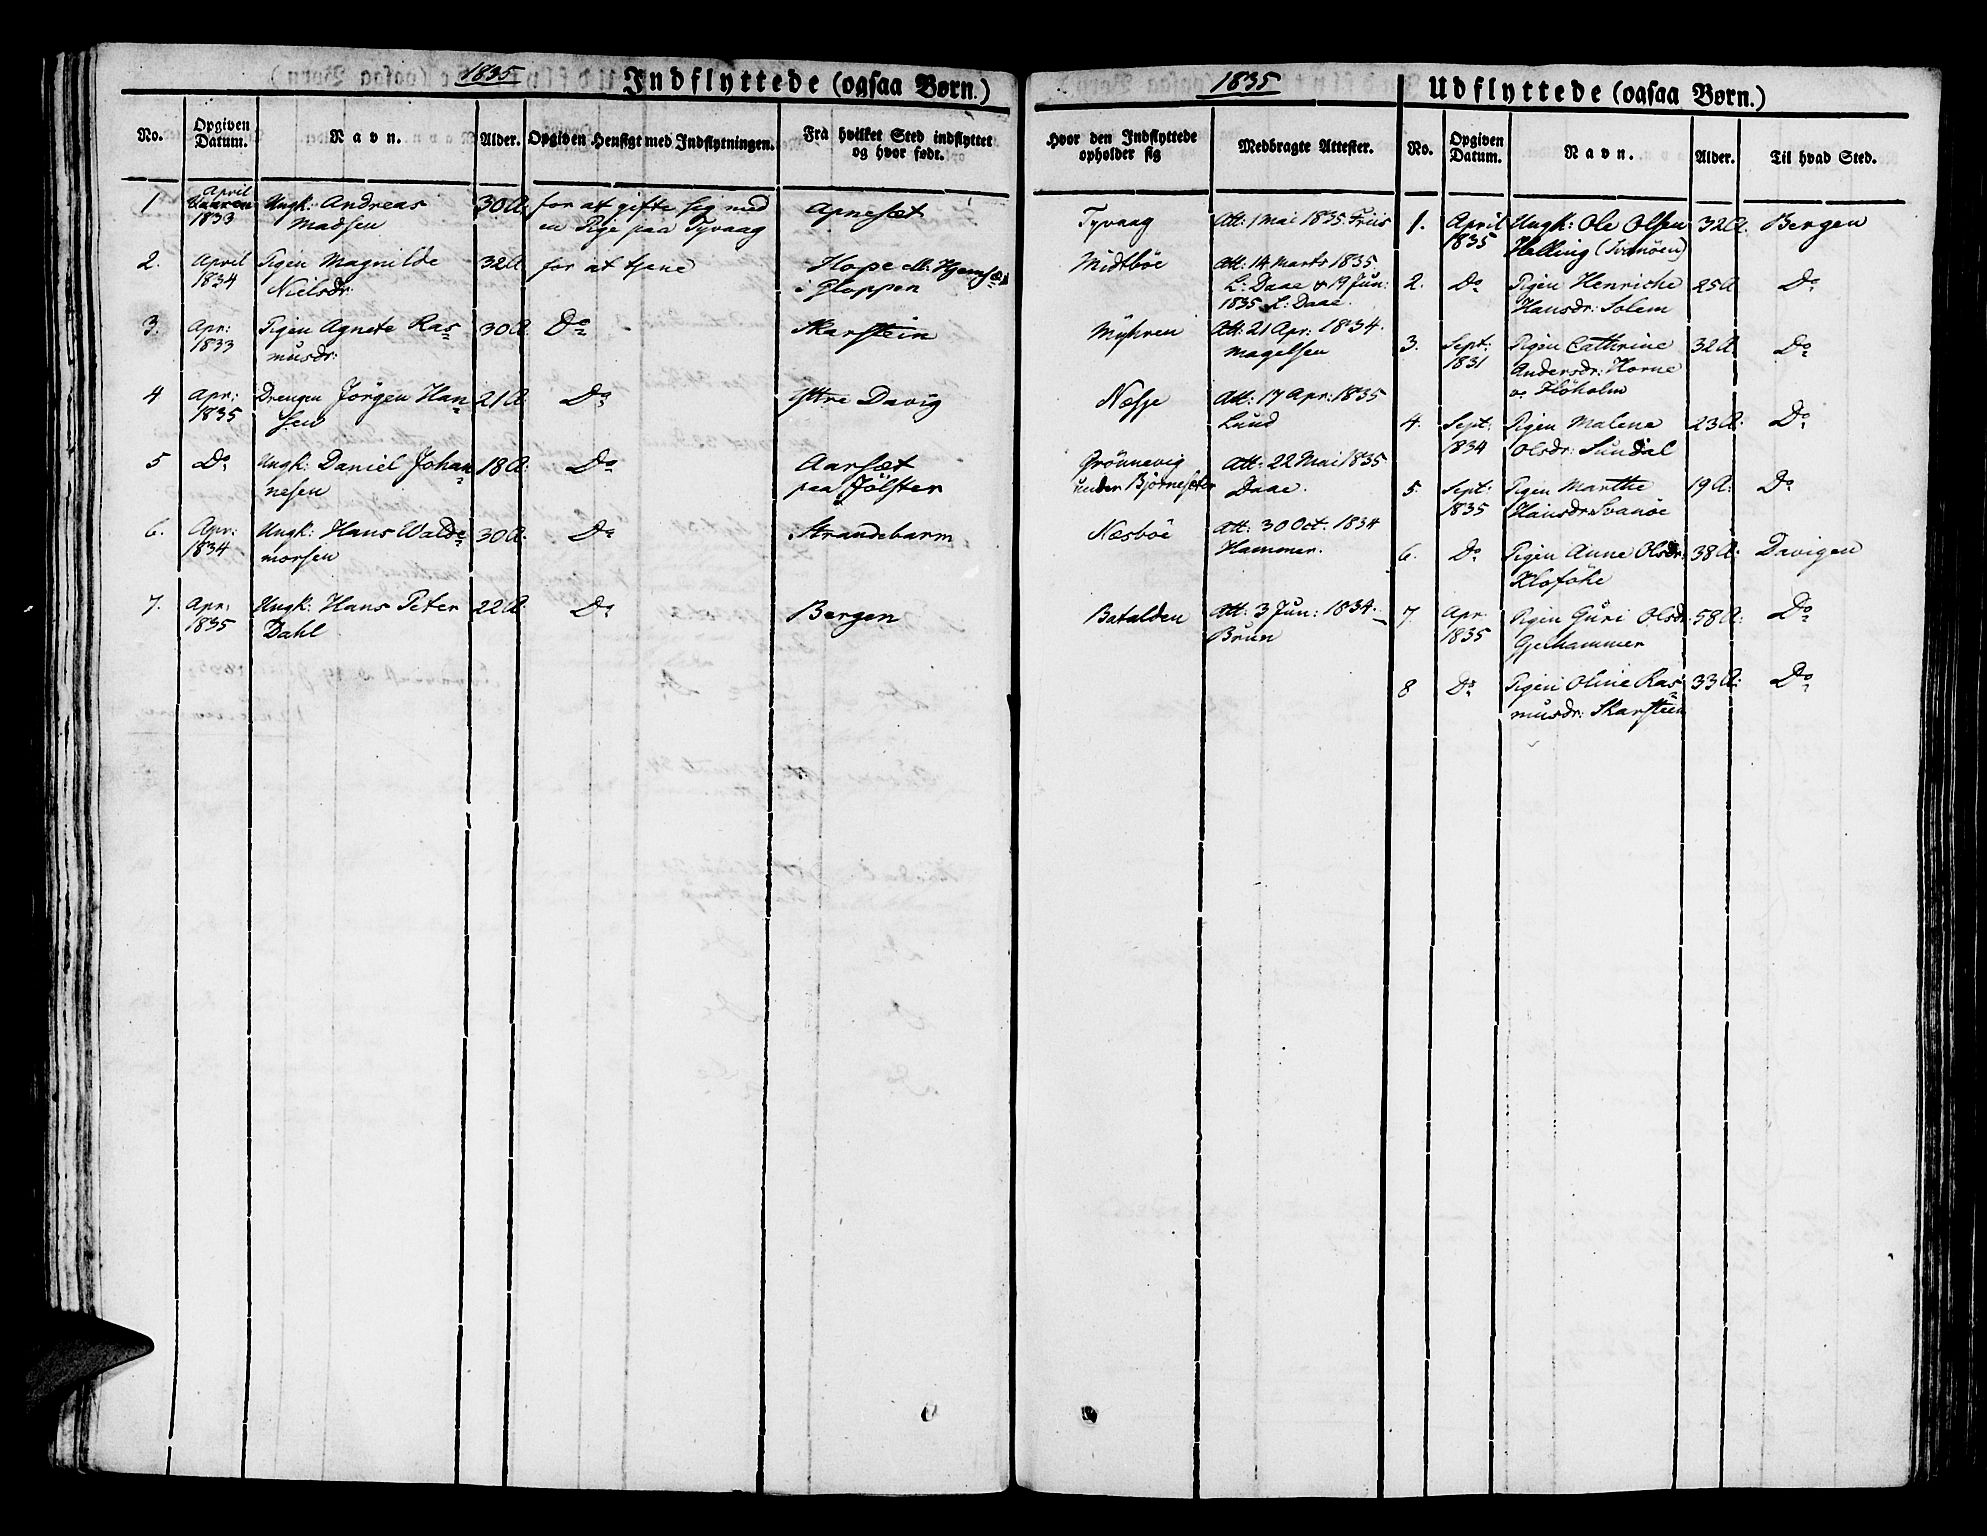 1835
Indflyttede (ogsaa Børn.)
No.
Opgiven Datum.
Navn.
Alder.
Opgiven Hensigt med Indflytningen.
Fra hvilket Sted indflyttet og hvor født.
1 April 1833 Ungk: Andreas 30A. for at gifte sig med Apnesæt
Madsen en Pige paa Tyvaag
2. April 1834 Pigen Magnilde 32A for at tjene Hope
Nielsdr i Gloppen
3. Apr: 1833 Pigen Agnete Ras= 30A. Do Skarstein
musdr:
4 Apr: 1835 Drengen Jörgen Han= 21A. Do Yttre Davig
sen
5 Do Ungk: Daniel Johan= 18A: Do Aarsæt
nesen paa Jölster
6. Apr: 1834 Ungk: Hans Walde= 30A. Do Strandebarm
morsen
7. Apr: 1835 Ungk: Hans Peter 22A. Do Bergen
Dahl
1835
Hvor den Indflyttede opholder sig
Medbragte Attester.
Tyvaag Att: 1 Mai 1835 Friis
Midtböe Att: 14 Marts 1835
L: Daae & 19 Jun:
1835 L: Daae.
Myhren Att: 21 Apr: 1834.
Magelsen
Nesje Att: 17 Apr: 1835
Lund
Grönnevig Att: 22 Mai 1835
under Björnesæter Daae.
Næsböe Att: 30 Oct: 1834
Hammer.
Batalden Att: 3 Jun: 1834.
Brun
Udflyttede (ogsaa Børn.)
No.
Opgiven Datum.
Navn.
Alder.
Til hvad Sted.
1. April 1835 Ungk: Ole Olsen 32A. Bergen
Helling (Svanöen)
2. Do Pigen Henriche 25A Do
Hansdr: Solem
3. Sept: 1831 Pigen Cathrine 32A Do
Andersdr: Horne
4. Sept: 1834 Pigen Malene 23A. Do
Olsdr: Sundal
5. Sept: 1835 Pigen Marthe 19A: Do
Hansdr: Svanöe
6. Do Pigen Anne Olsdr: 38A: Davigen
7 Apr 1835 Pigen Guri Olsdr: 58A: Do
Gjelhammer
8 Do Pigen Oline Ras= 33A: Do
musdr: Skarsteen